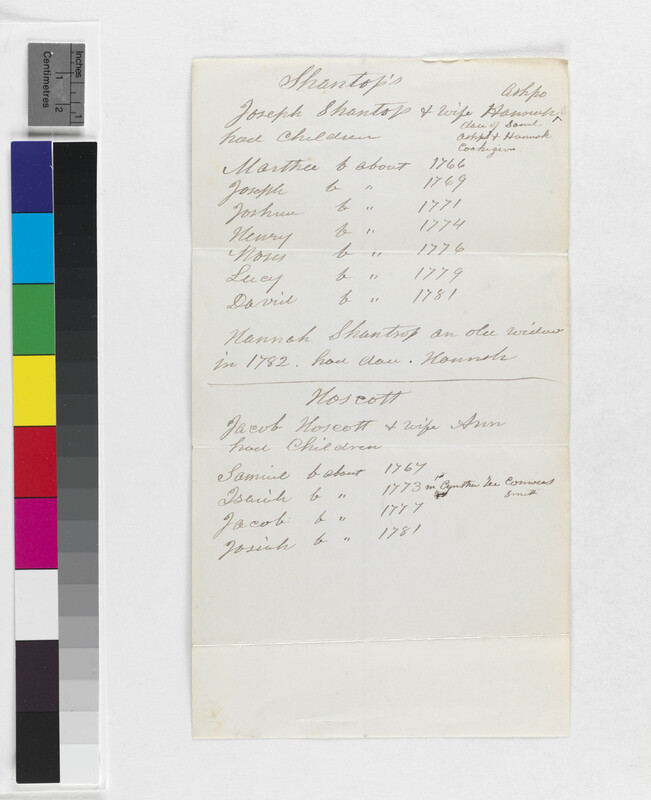 Inches
Centimetres
1
2
1
Shantop's
Ashpo
Joseph Shantop & wife Hannah
dau of Saml
had Children
Ashpo & Hannah
Martha b about 1766
Joseph b " 1769
Joshua b " 1771
Henry b " 1774
Moses b " 1776
Lucy b " 1779
David b " 1781
Hannah Shantop an old widow
in 1782. had dau. Hannah
Hoscott
Jacob Hoscott & wife Ann
had Children
Samuel b about 1767
Isaiah b " 1773 m Cynthia
Smith
Jacob b " 1777
Josiah b " 1781